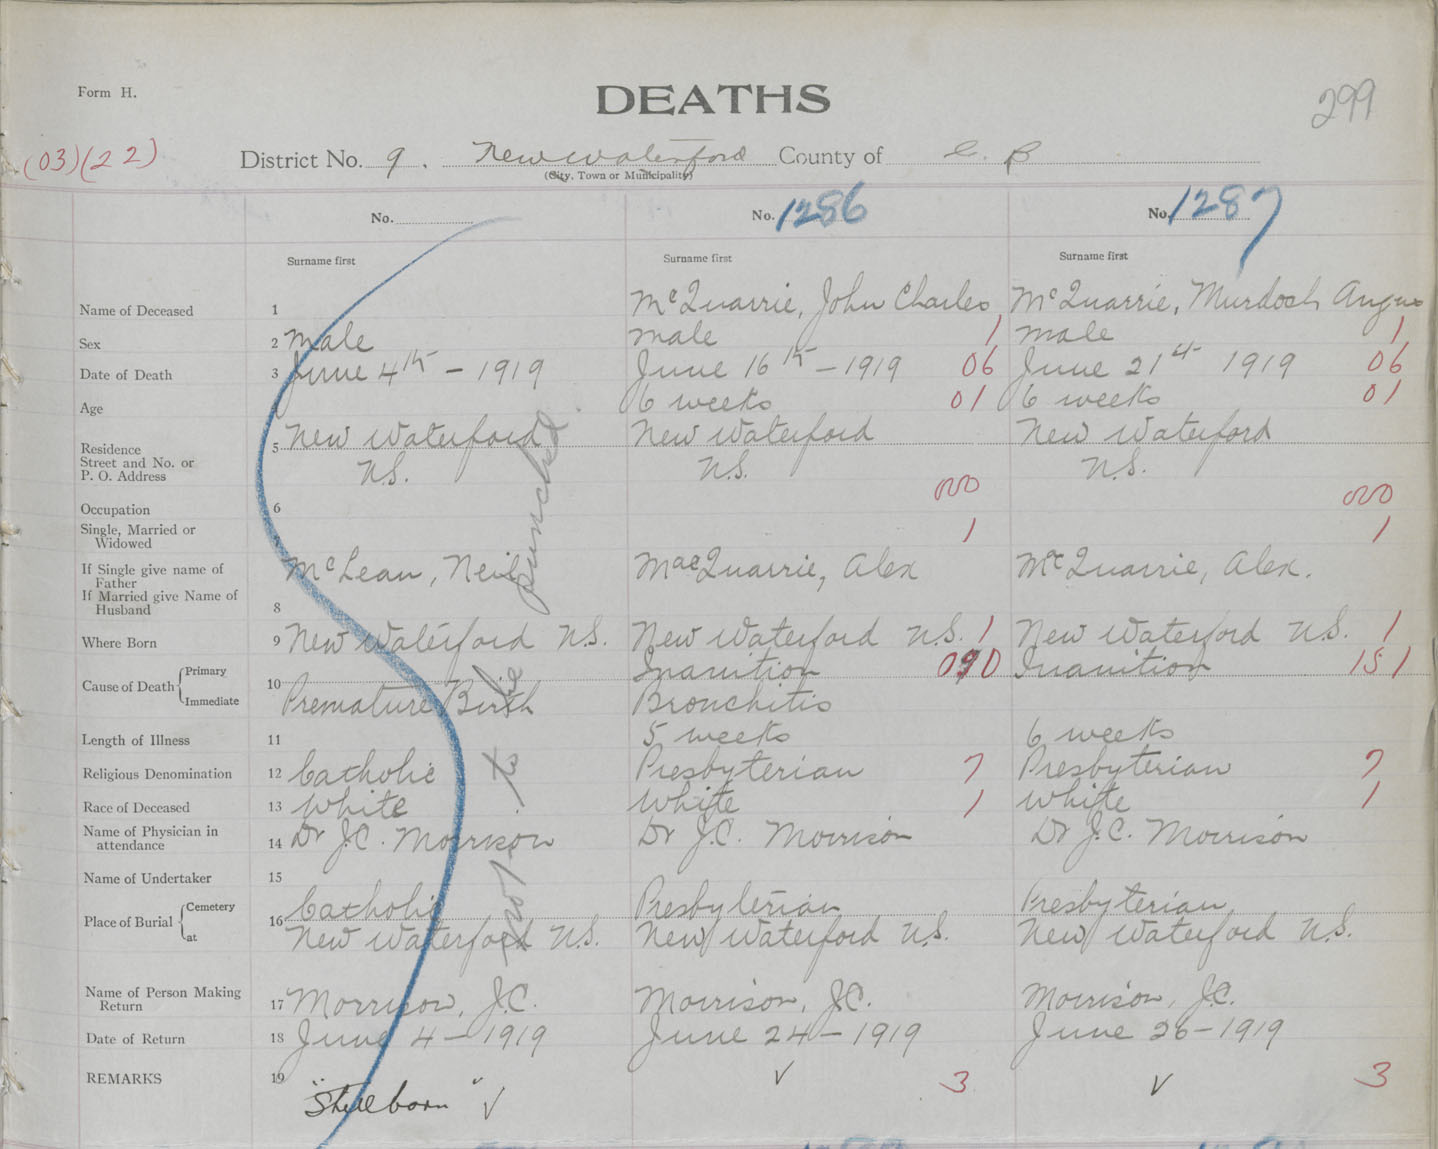 Form H.
DEATHS
299
(03)(22)
District No. 9. New Waterford County of C. B
(City, Town or Municipality)
No. No. 1286 No. 1287
Surname first Surname first Surname first
Name of Deceased 1 McQuarrie, John Charles McQuarrie, Murdoch Angus
Sex 2 Male male 1 male 1
Date of Death 3 June 4th - 1919 June 16th - 1919 06 June 21st 1919 06
Age 6 weeks 01 6 weeks 01
Residence
Street and No. or
P. O. Address
5 New Waterford New Waterford New Waterford
N.S. N.S. N.S.
000 000
Occupation 6
Single, Married or
Widowed
1 1
If Single give name of
Father
If Married give Name of
Husband
8
McLean, Neil MacQuarrie, Alex McQuarrie, Alex.
Where Born 9 New Waterford N.S. New Waterford N.S. 1 New Waterford N.S. 1
Cause of Death Primary Inanition 090 Inanition 151
10
Immediate Premature Birth Bronchitis
Length of Illness 11 5 weeks 6 weeks
Religious Denomination 12 Catholic Presbyterian 7 Presbyterian 7
Race of Deceased 13 White White 1 White 1
Name of Physician in
attendance
14 Dr J.C. Morrison Dr J.C. Morrison Dr J.C. Morrison
Name of Undertaker 15
Place of Burial Cemetery 16 Catholic Presbyterian Presbyterian
at New Waterford N.S. New Waterford N.S. New Waterford N.S.
Name of Person Making
Return
17 Morrison, J.C. Morrison, J.C. Morrison, J.C.
Date of Return 18 June 4 - 1919 June 24 - 1919 June 26 - 1919
REMARKS 19 "Stillborn" 3 3
not to be punched